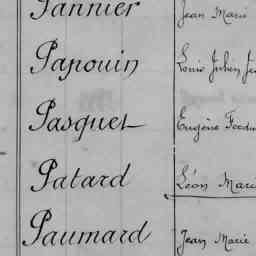 Pannier Jean Marie
Papouin Louis Julien
Pasquet Eugène
Patard Léon Marie
Paumard Jean Marie